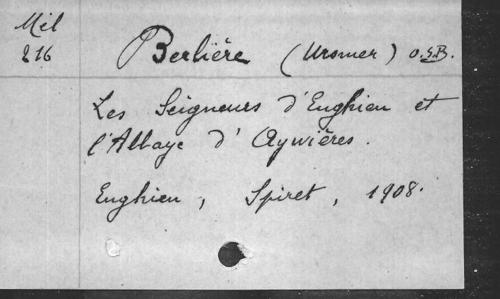 Mél
216
Berlière (Ursmer) O.S.B.
Les Seigneurs d'Enghien et
l'Abbaye d'Aywières.
Enghien, Spiret, 1908.